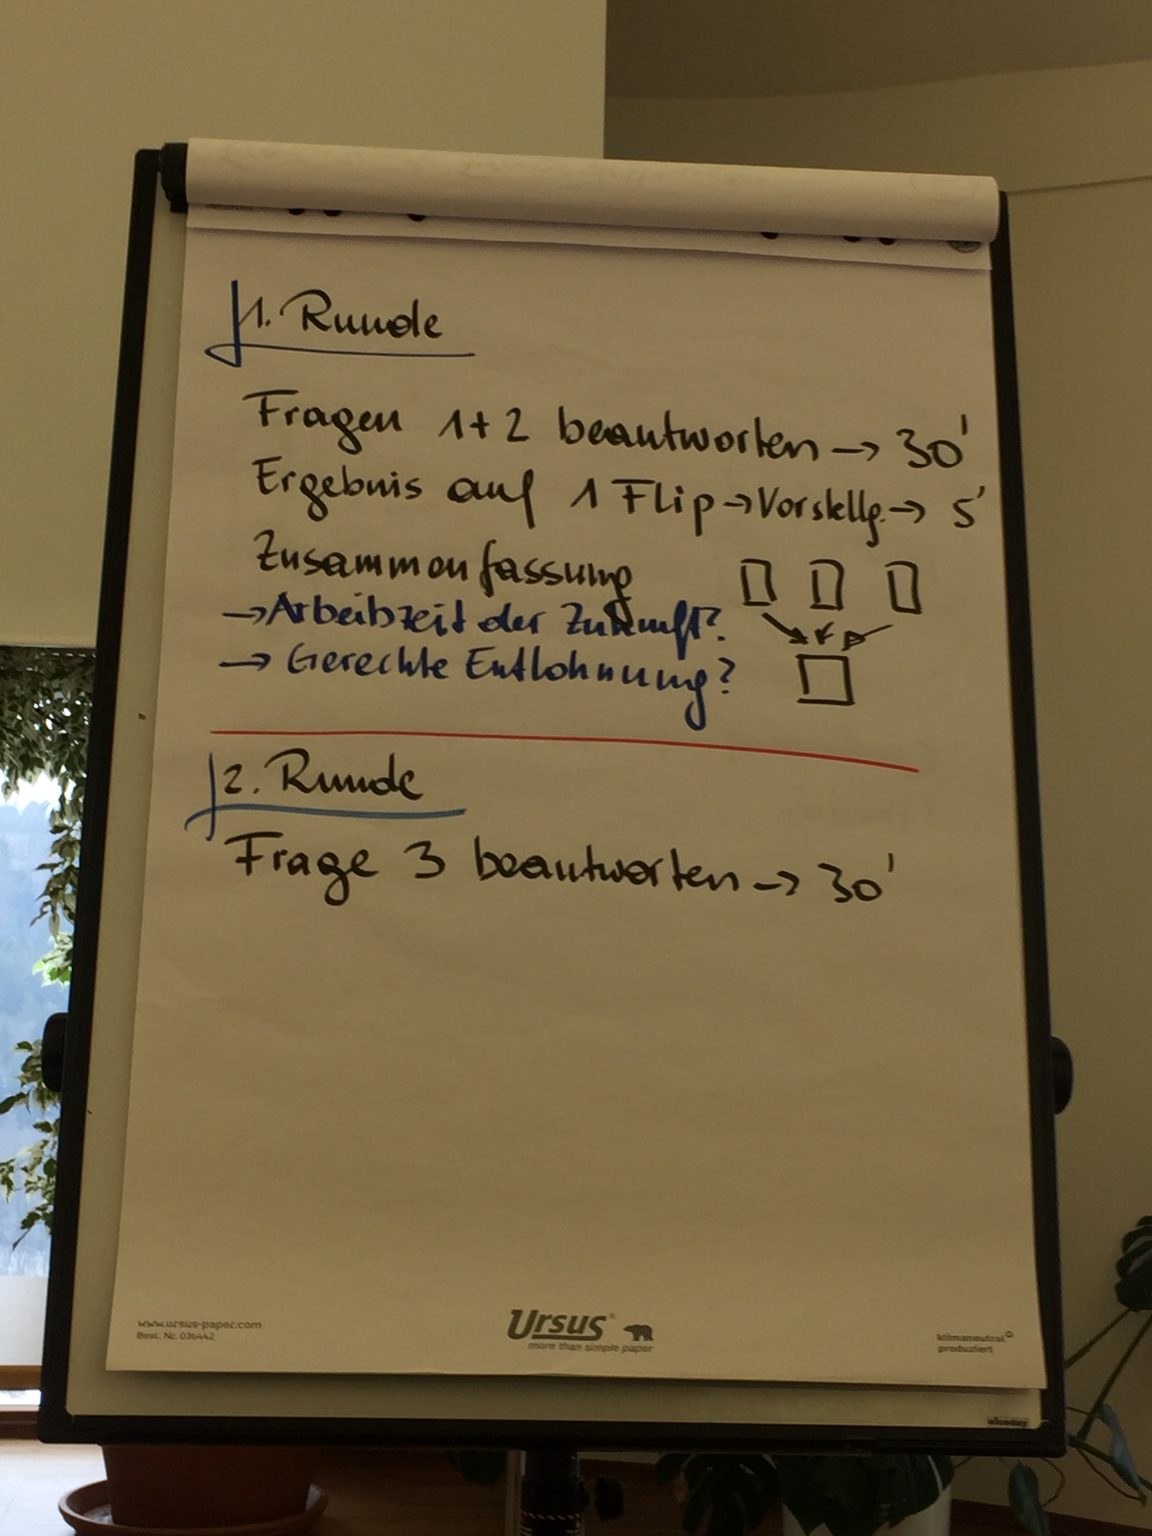 1. Runde
Fragen 1+2 beantworten → 30'
Ergebnis auf 1 Flip → Vorstellg. → 5'
Zusammenfassung
→ Arbeitszeit der Zukunft?
→ Gerechte Entlohnung?
2. Runde
Frage 3 beantworten → 30'
www.ursus-paper.com
Best. Nr. 036442
Ursus®
more than simple paper
klimaneutral
produziert